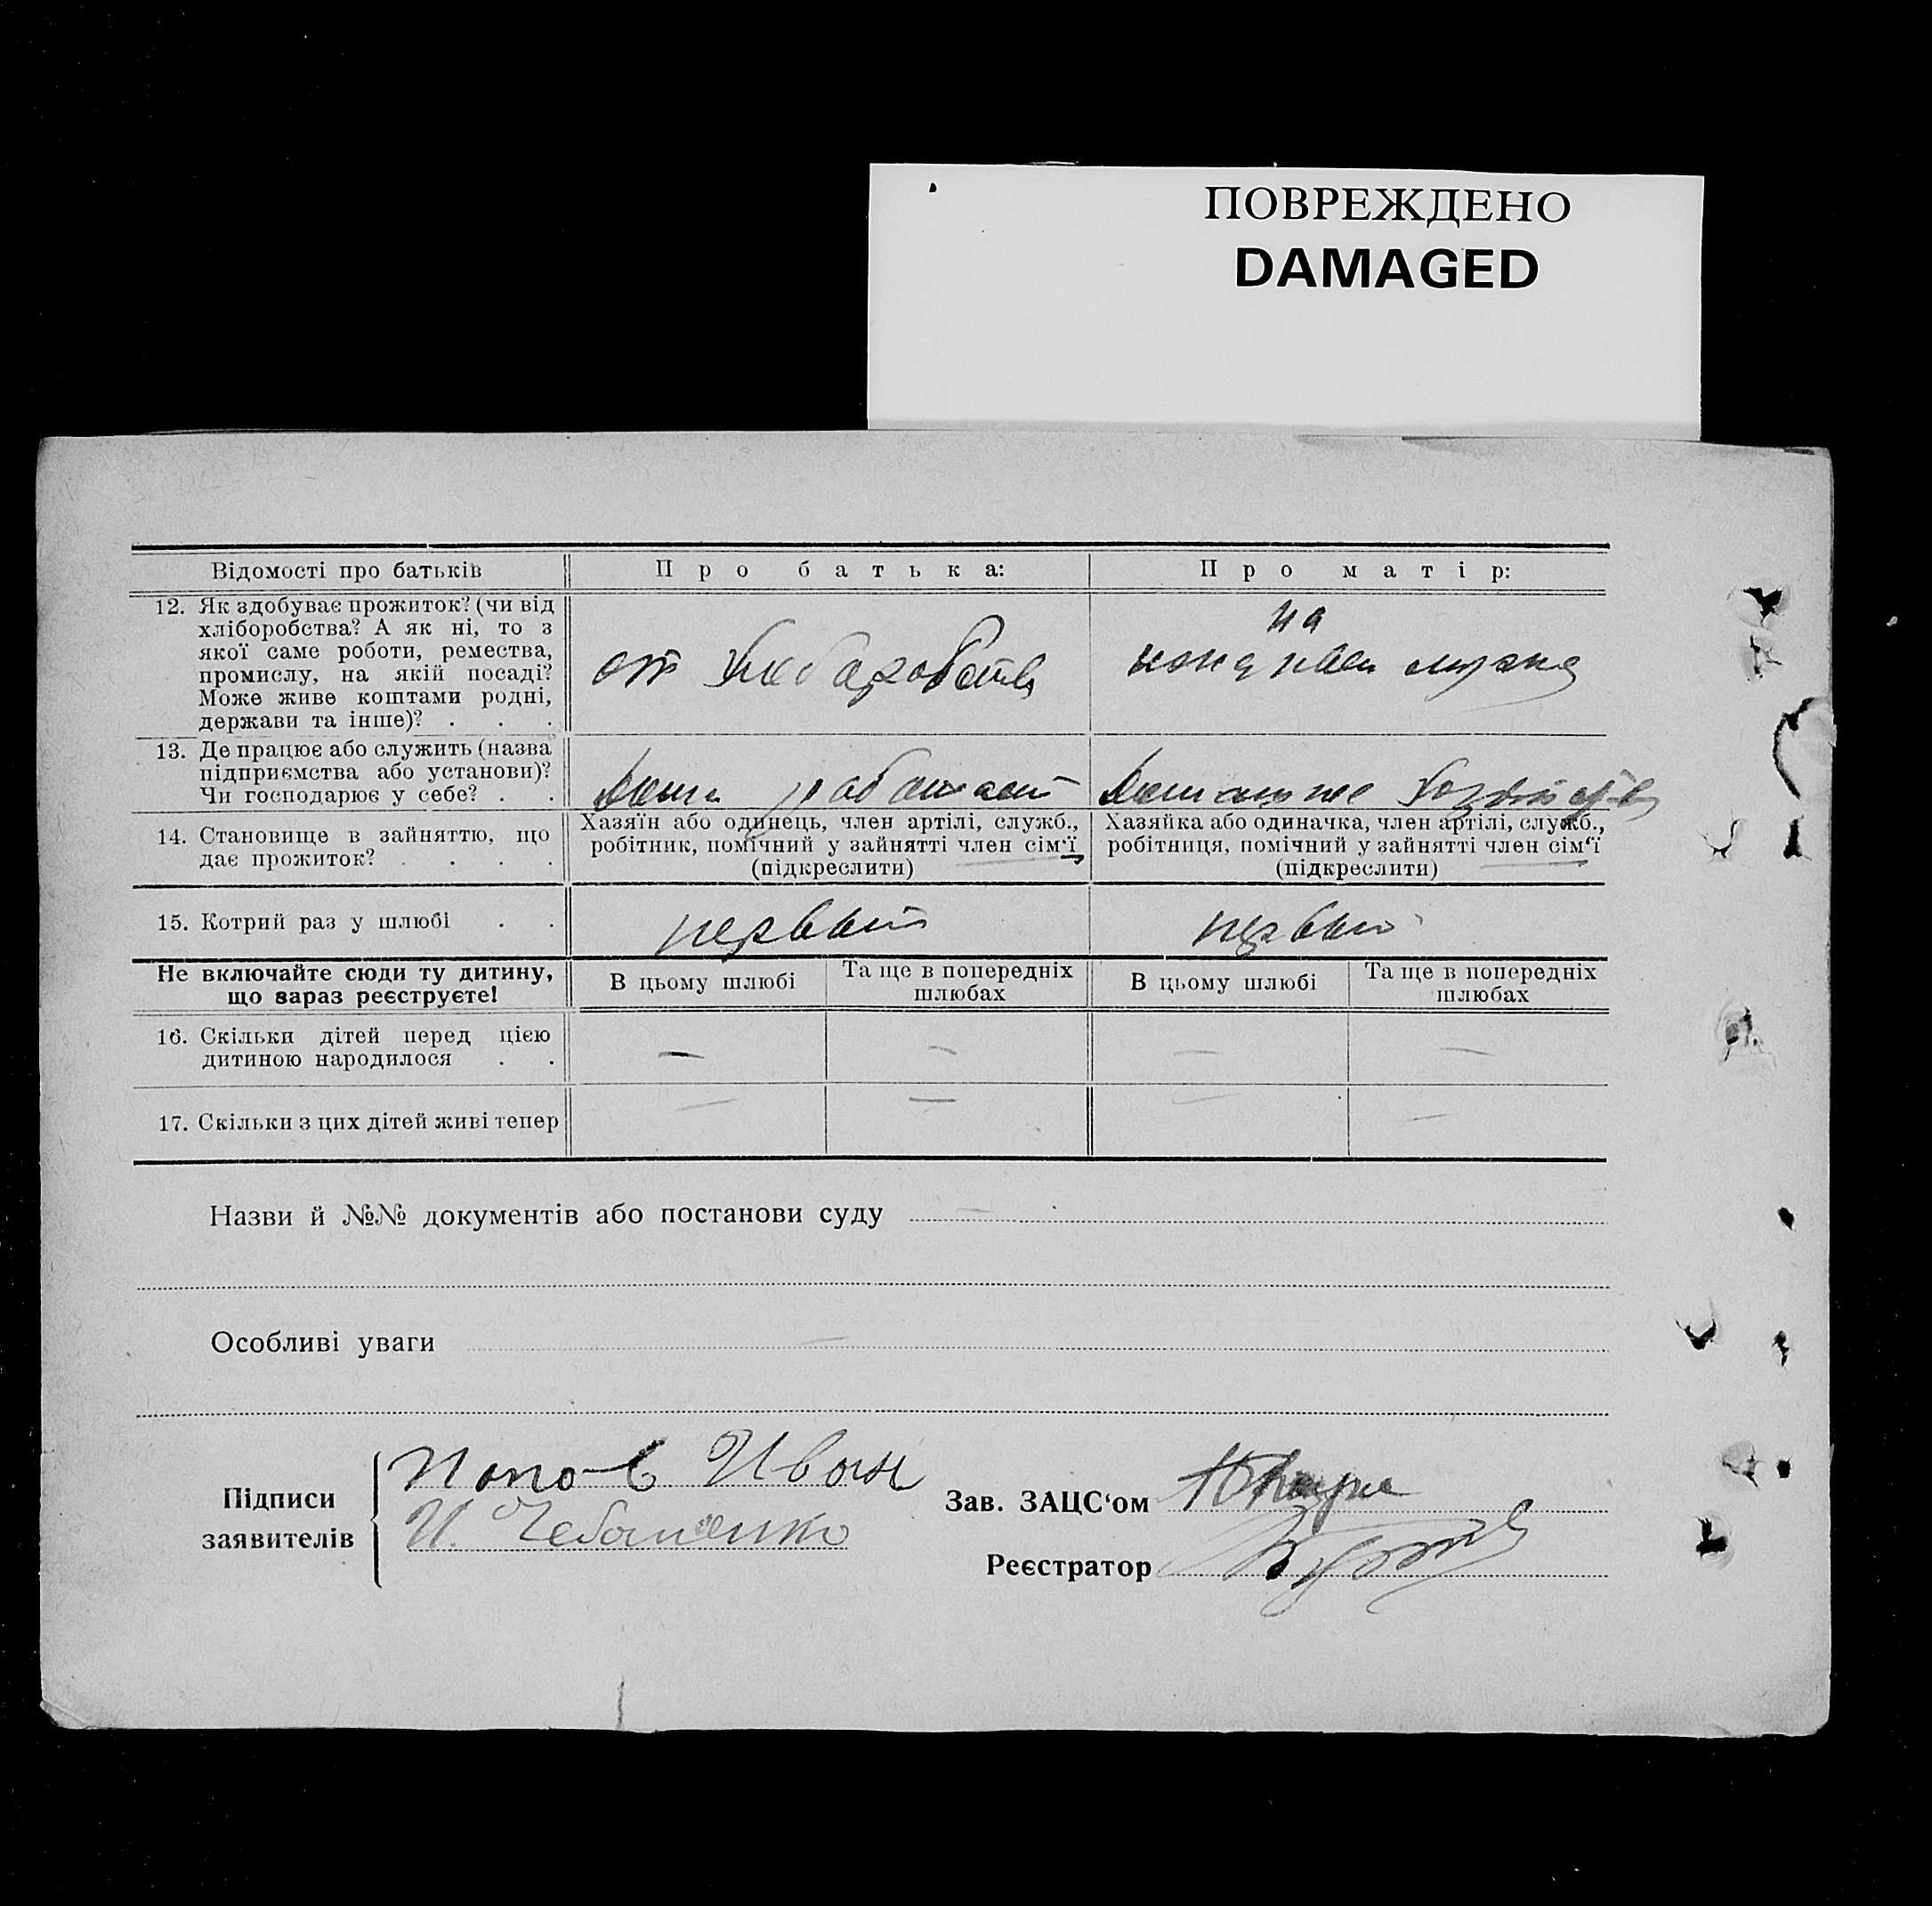 ПОВРЕЖДЕНО
DAMAGED
Відомості про батьків
Про батька:
Про матір:
12. Як здобуває прожиток? (чи від
хліборобства? А як ні, то з
якої саме роботи, ремества,
промислу, на якій посаді?
Може живе коштами родні,
держави та інше)? . . .
от
на
мужа
13. Де працює або служить (назва
підприємства або установи)?
Чи господарює у себе? . .
дома работает
Домашнее
14. Становище в зайняттю, що
дає прожиток? . . . .
Хазяїн або одинець, член артілі, служб.,
робітник, помічний у зайнятті член сім‘ї
(підкреслити)
Хазяйка або одиначка, член артілі, служб.,
робітниця, помічний у зайнятті член сім‘ї
(підкреслити)
15. Котрий раз у шлюбі . .
первый
первый
Не включайте сюди ту дитину,
що зараз реєструєте!
В цьому шлюбі
Та ще в попередніх
шлюбах
В цьому шлюбі
Та ще в попередніх
шлюбах
16. Скільки дітей перед цією
дитиною народилося . .
— — — —
17. Скільки з цих дітей живі тепер
— — — —
Назви й №№ документів або постанови суду —
Особливі уваги —
Підписи
заявителів
Попов Иван
И. Чебаненко
Зав. ЗАЦС‘ом
Реєстратор